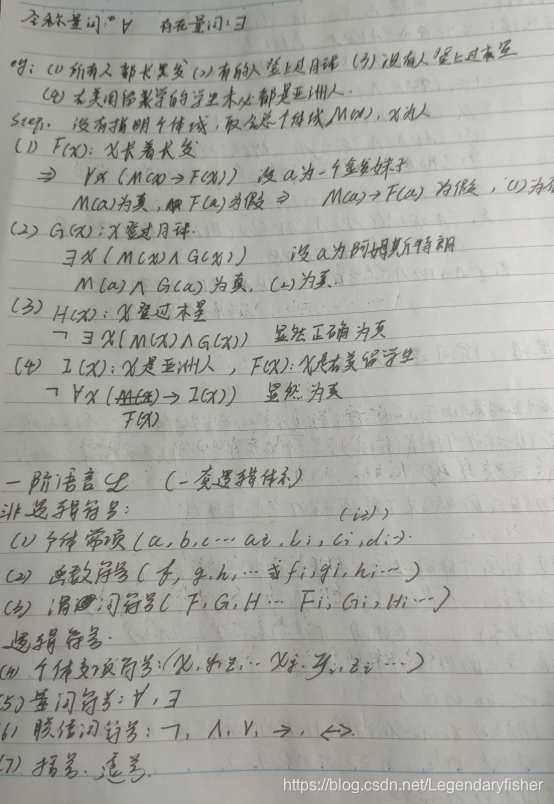 全称量词:"∀ 存在量词:∃
eg: (1) 所有人都长黑发 (2) 有的人登上过月球 (3) 没有人登上过木星
(4) 在美国留学的学生未必都是亚洲人.
Step. 没有指明个体域,取全总个体域 M(x), x为人
(1) F(x): x长着黑发
⇒ ∀x (M(x)→F(x)) 设 a为一个金发妹子
M(a)为真, F(a)为假 ⇒ M(a)→F(a) 为假, (1)为
(2) G(x): x登过月球.
∃x (M(x)∧G(x)) 设a为阿姆斯特朗
M(a)∧G(a)为真, (2)为真.
(3) H(x): x登过木星
¬∃x(M(x)∧G(x)) 显然正确为真
(4) I(x): x是亚洲人, F(x): x是在美留学生
¬∀x (M(x)→I(x)) 显然为真
F(x)
一阶语言ℒ (一套逻辑体系)
非逻辑符号: (i≥1)
(1) 个体常项(a, b, c … ai, bi, ci, di…)
(2) 函数符号(f, g, h, … 或 fi, gi, hi…)
(3) 谓词符号(F, G, H … Fi, Gi, Hi…)
逻辑符号.
(4) 个体变项符号:(x, y, z, … xi, yi, zi …)
(5) 量词符号: ∀, ∃
(6) 联结词符号: ¬, ∧, ∨, →, ↔.
(7) 括号、逗号.
https://blog.csdn.net/Legendaryfisher